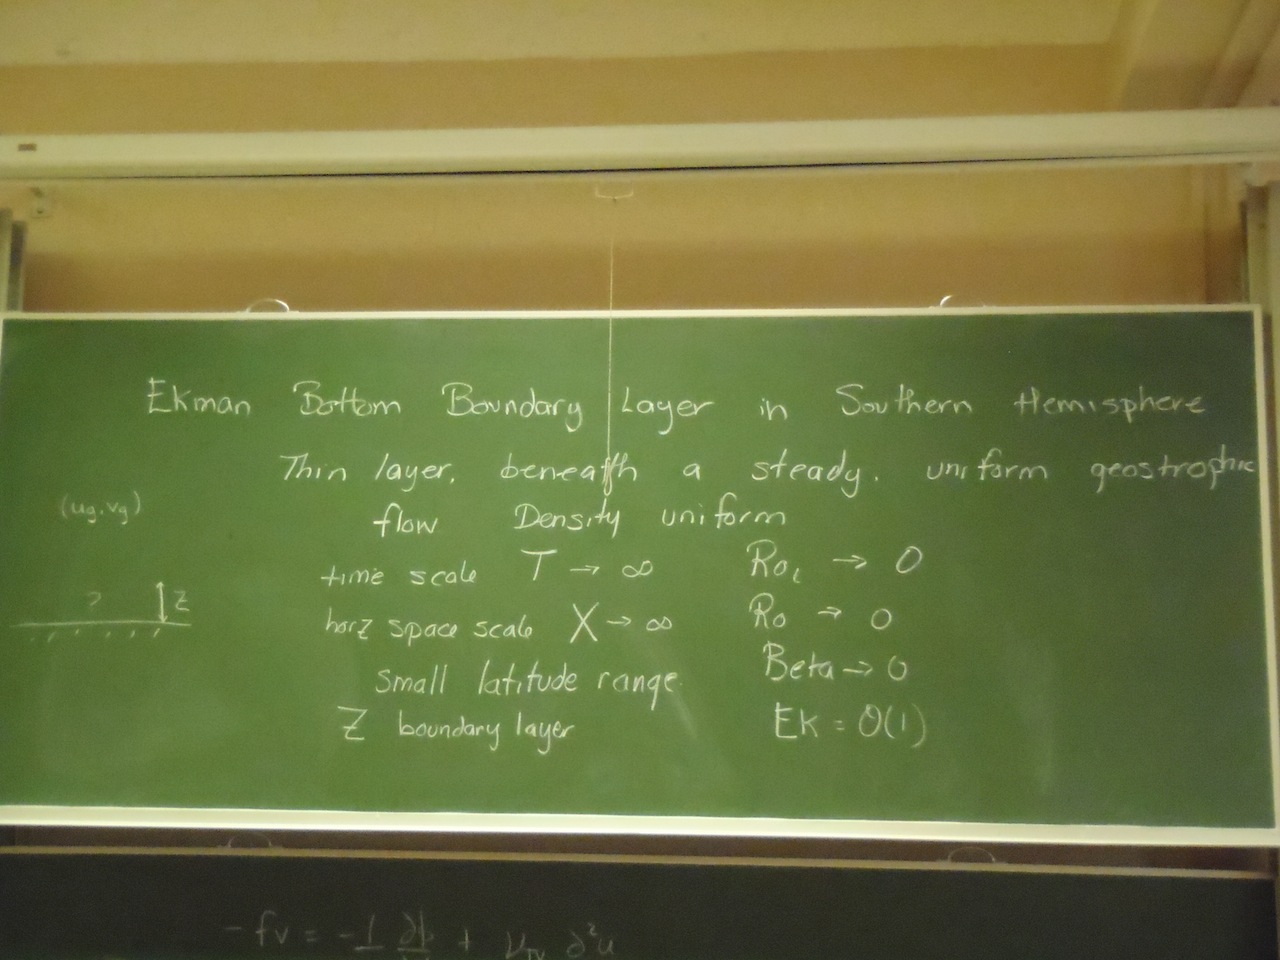 Ekman Bottom Boundary Layer in Southern Hemisphere
Thin layer, beneath a steady, uniform geostrophic
flow Density uniform
(ug, vg)
time scale T → ∞ Ro_t → 0
? Z
horz space scale X → ∞ Ro → 0
small latitude range Beta → 0
Z boundary layer Ek = O(1)
-fv = -1 ∂p + ν_TV ∂²u